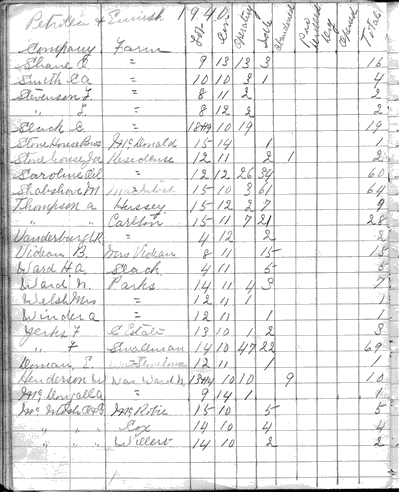 Petrolia & Enniskn 1940
Company Farm Lot Con Operating Idle Abandoned Total
Shane E " 9 13 13 3 16
Smith C A " 10 10 3 1 4
Stevenson J. " 8 11 2 2
" J. " 8 12 2 2
Slack C. " 18+19 10 19 19
Stone House Bros McDonald 15 14 1 1
Stonehouse Residence 12 11 2 1 2
Caroline Oil " 12 12 26 34 60
M 15 10 3 61 64
Thompson A Hussey 15 12 2 7 9
" " Carlton 15 11 7 21 28
Vanderburg " 4 12 2 2
Vidian B. Mrs Vidian 8 11 15 15
Ward H A Slack 4 11 5 5
Ward N. Parks 14 11 4 3 7
Welsh Mrs " 12 11 1 1
Winder A " 12 11 1 1
Yerks F C Estate 13 10 1 2 3
" F Swallman 14 10 47 22 69
E. 12 11 1
Henderson W was Ward N. 13+14 10 10 9 10
McDougall A " 9 14 1 1
McRobie 15 10 5 5
" " " Cox 14 10 4 4
" " " Willert 14 10 2 2